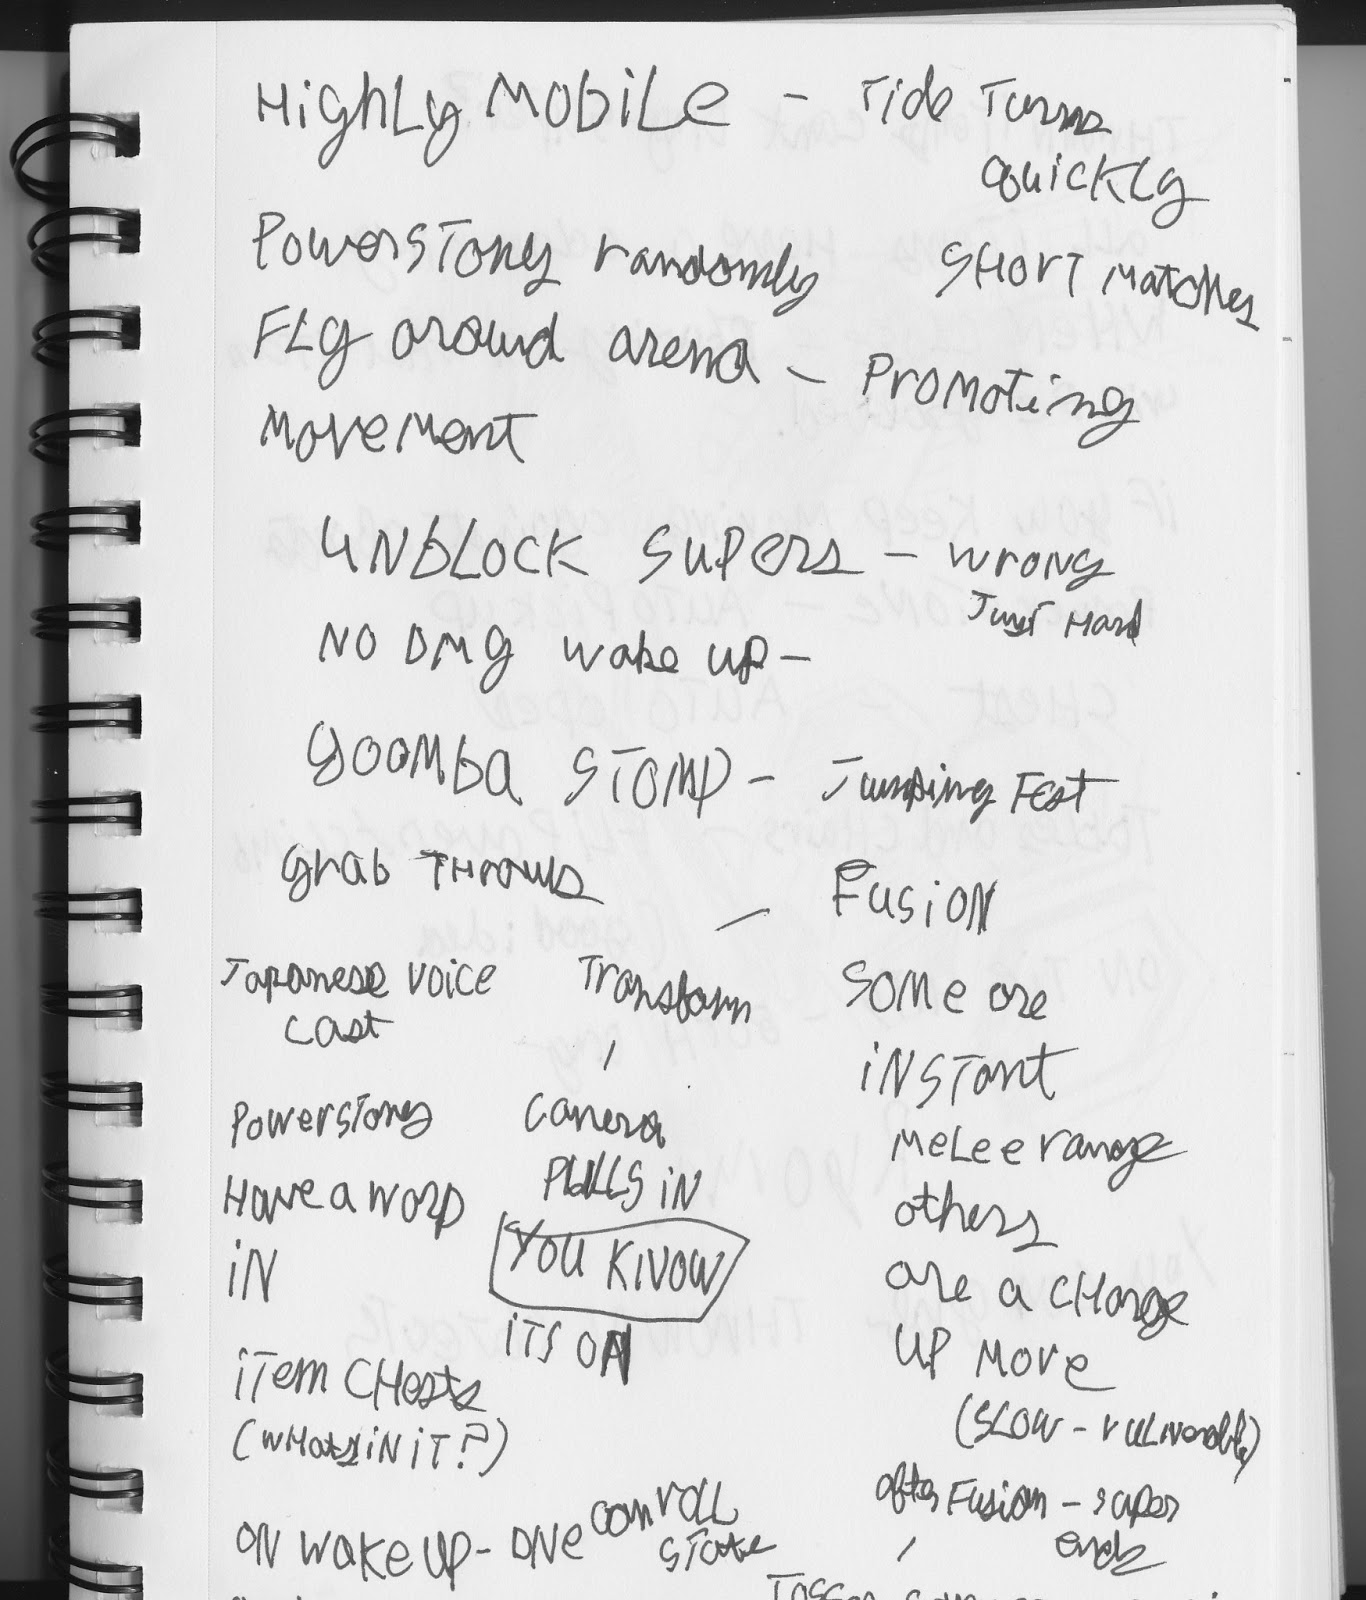 Highly Mobile - Tide Turns
quickly
Powerstones randomly
Short Matches
Fly around arena - Promoting
Movement
Unblock Supers - wrong
Just Hard
No DMG wake up -
Goomba Stomp - Jumping Fest
Grab Throws
Fusion
Japanese voice
cast
Transform
Some are
instant
Melee range
others
are a charge
up move
(slow - vulnerable)
after Fusion - super
ends
Powerstones
Have a warp
in
Camera
Pulls in
You Know
its on
item Chests
(whats in it?)
on wake up - one can roll
state